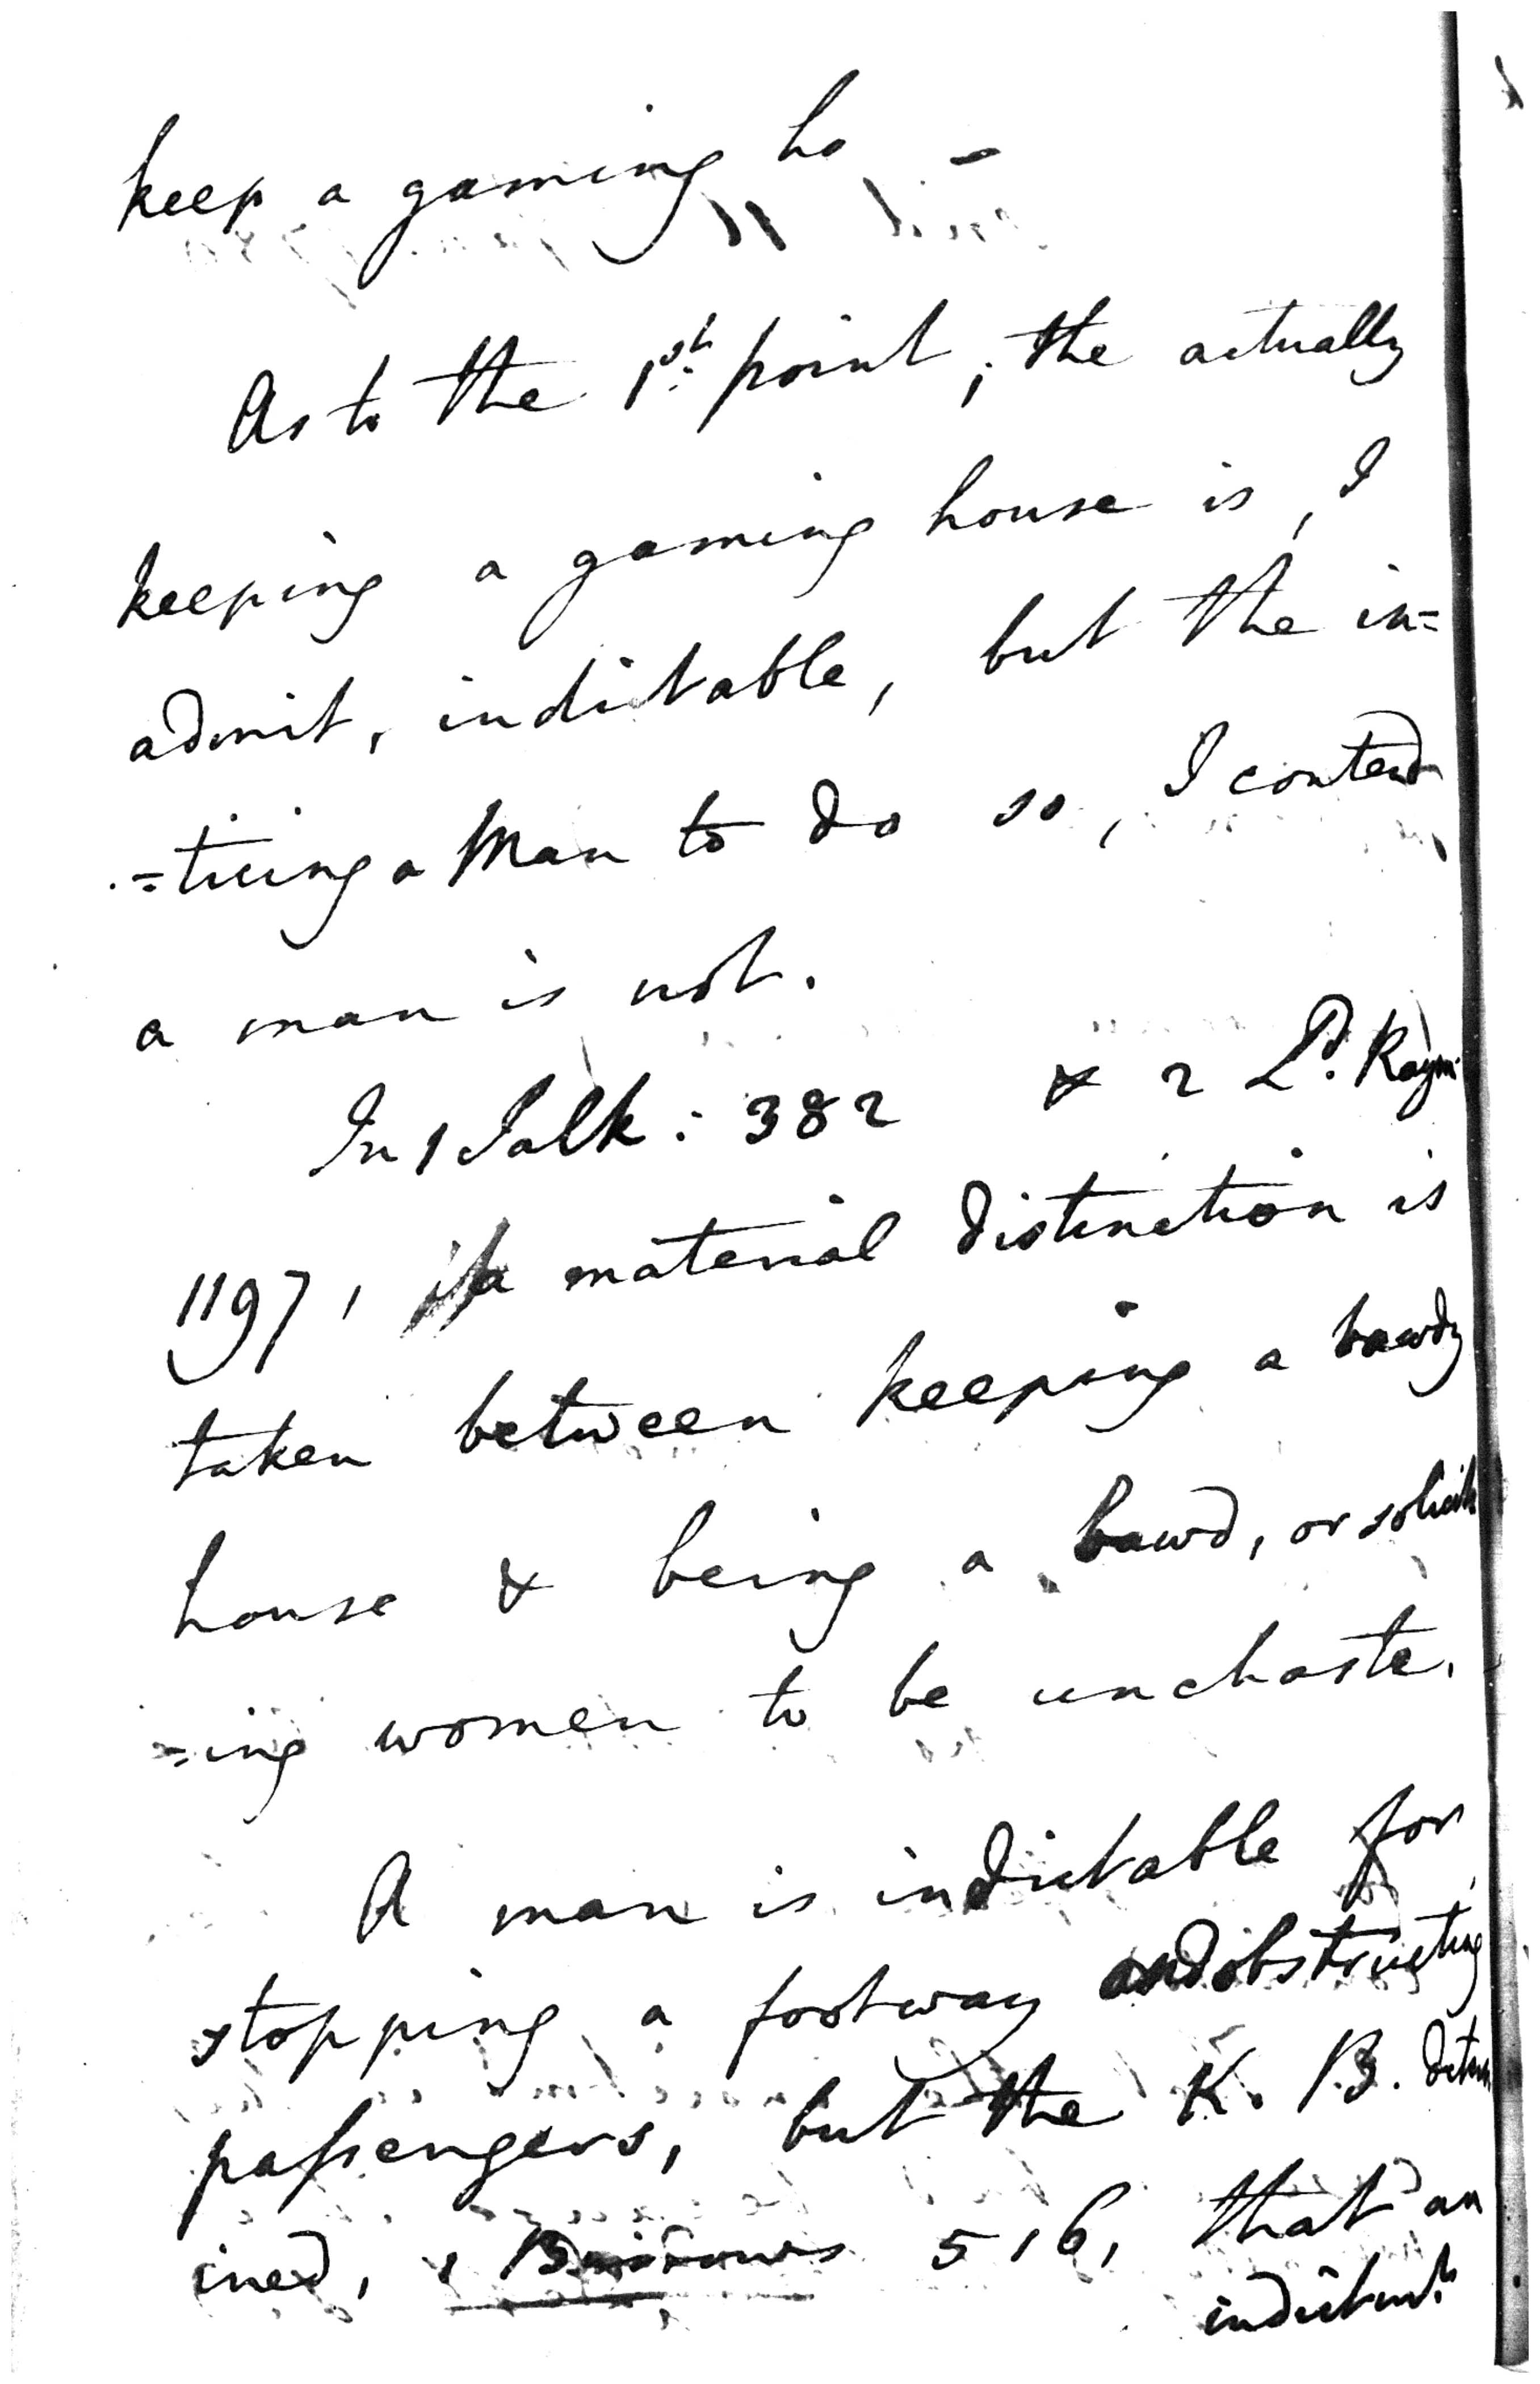 keep a gaming ho -
As to the 1st: point; the actually
keeping a gaming house is, I
admit, indictable, but the in=
=ticing a Man to do so, I contend
a man is not.
In 1 Salk: 382 & 2 Ld. Raym:
1197, a material distinction is
taken between keeping a bawdy
house & being a bawd, or solicit
=ing women to be unchaste.
A man is indictable for
stopping a footway and obstructing
passengers, but the K. B. determ
ined, 1 Burrows 516, that an
indictmt.